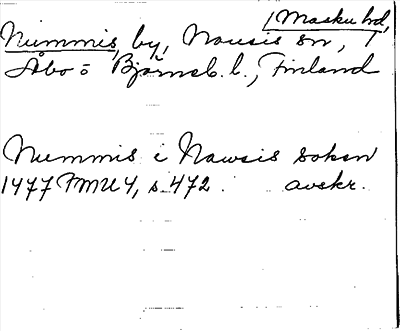 Masku hd,
Nummis, by, Nousis sn, T
Åbo o Björneb. l., Finland
Nummis i Nawsis sokon
1477 FMU 4, s. 472. avskr.